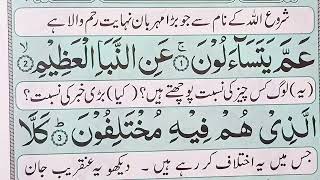 شروع اللہ کے نام سے جو بڑا مہربان نہایت رحم والا ہے
عَمَّ يَتَسَآءَلُوْنَ ۚ﴿۱﴾ عَنِ النَّبَاِ الْعَظِيْمِ ۙ﴿۲﴾
(یہ) لوگ کس چیز کی نسبت پوچھتے ہیں؟ (کیا) بڑی خبر کی نسبت؟
الَّذِىْ هُمْ فِيْهِ مُخْتَلِفُوْنَ ؕ﴿۳﴾ كَلَّا
جس میں یہ اختلاف کر رہے ہیں۔ دیکھو یہ عنقریب جان